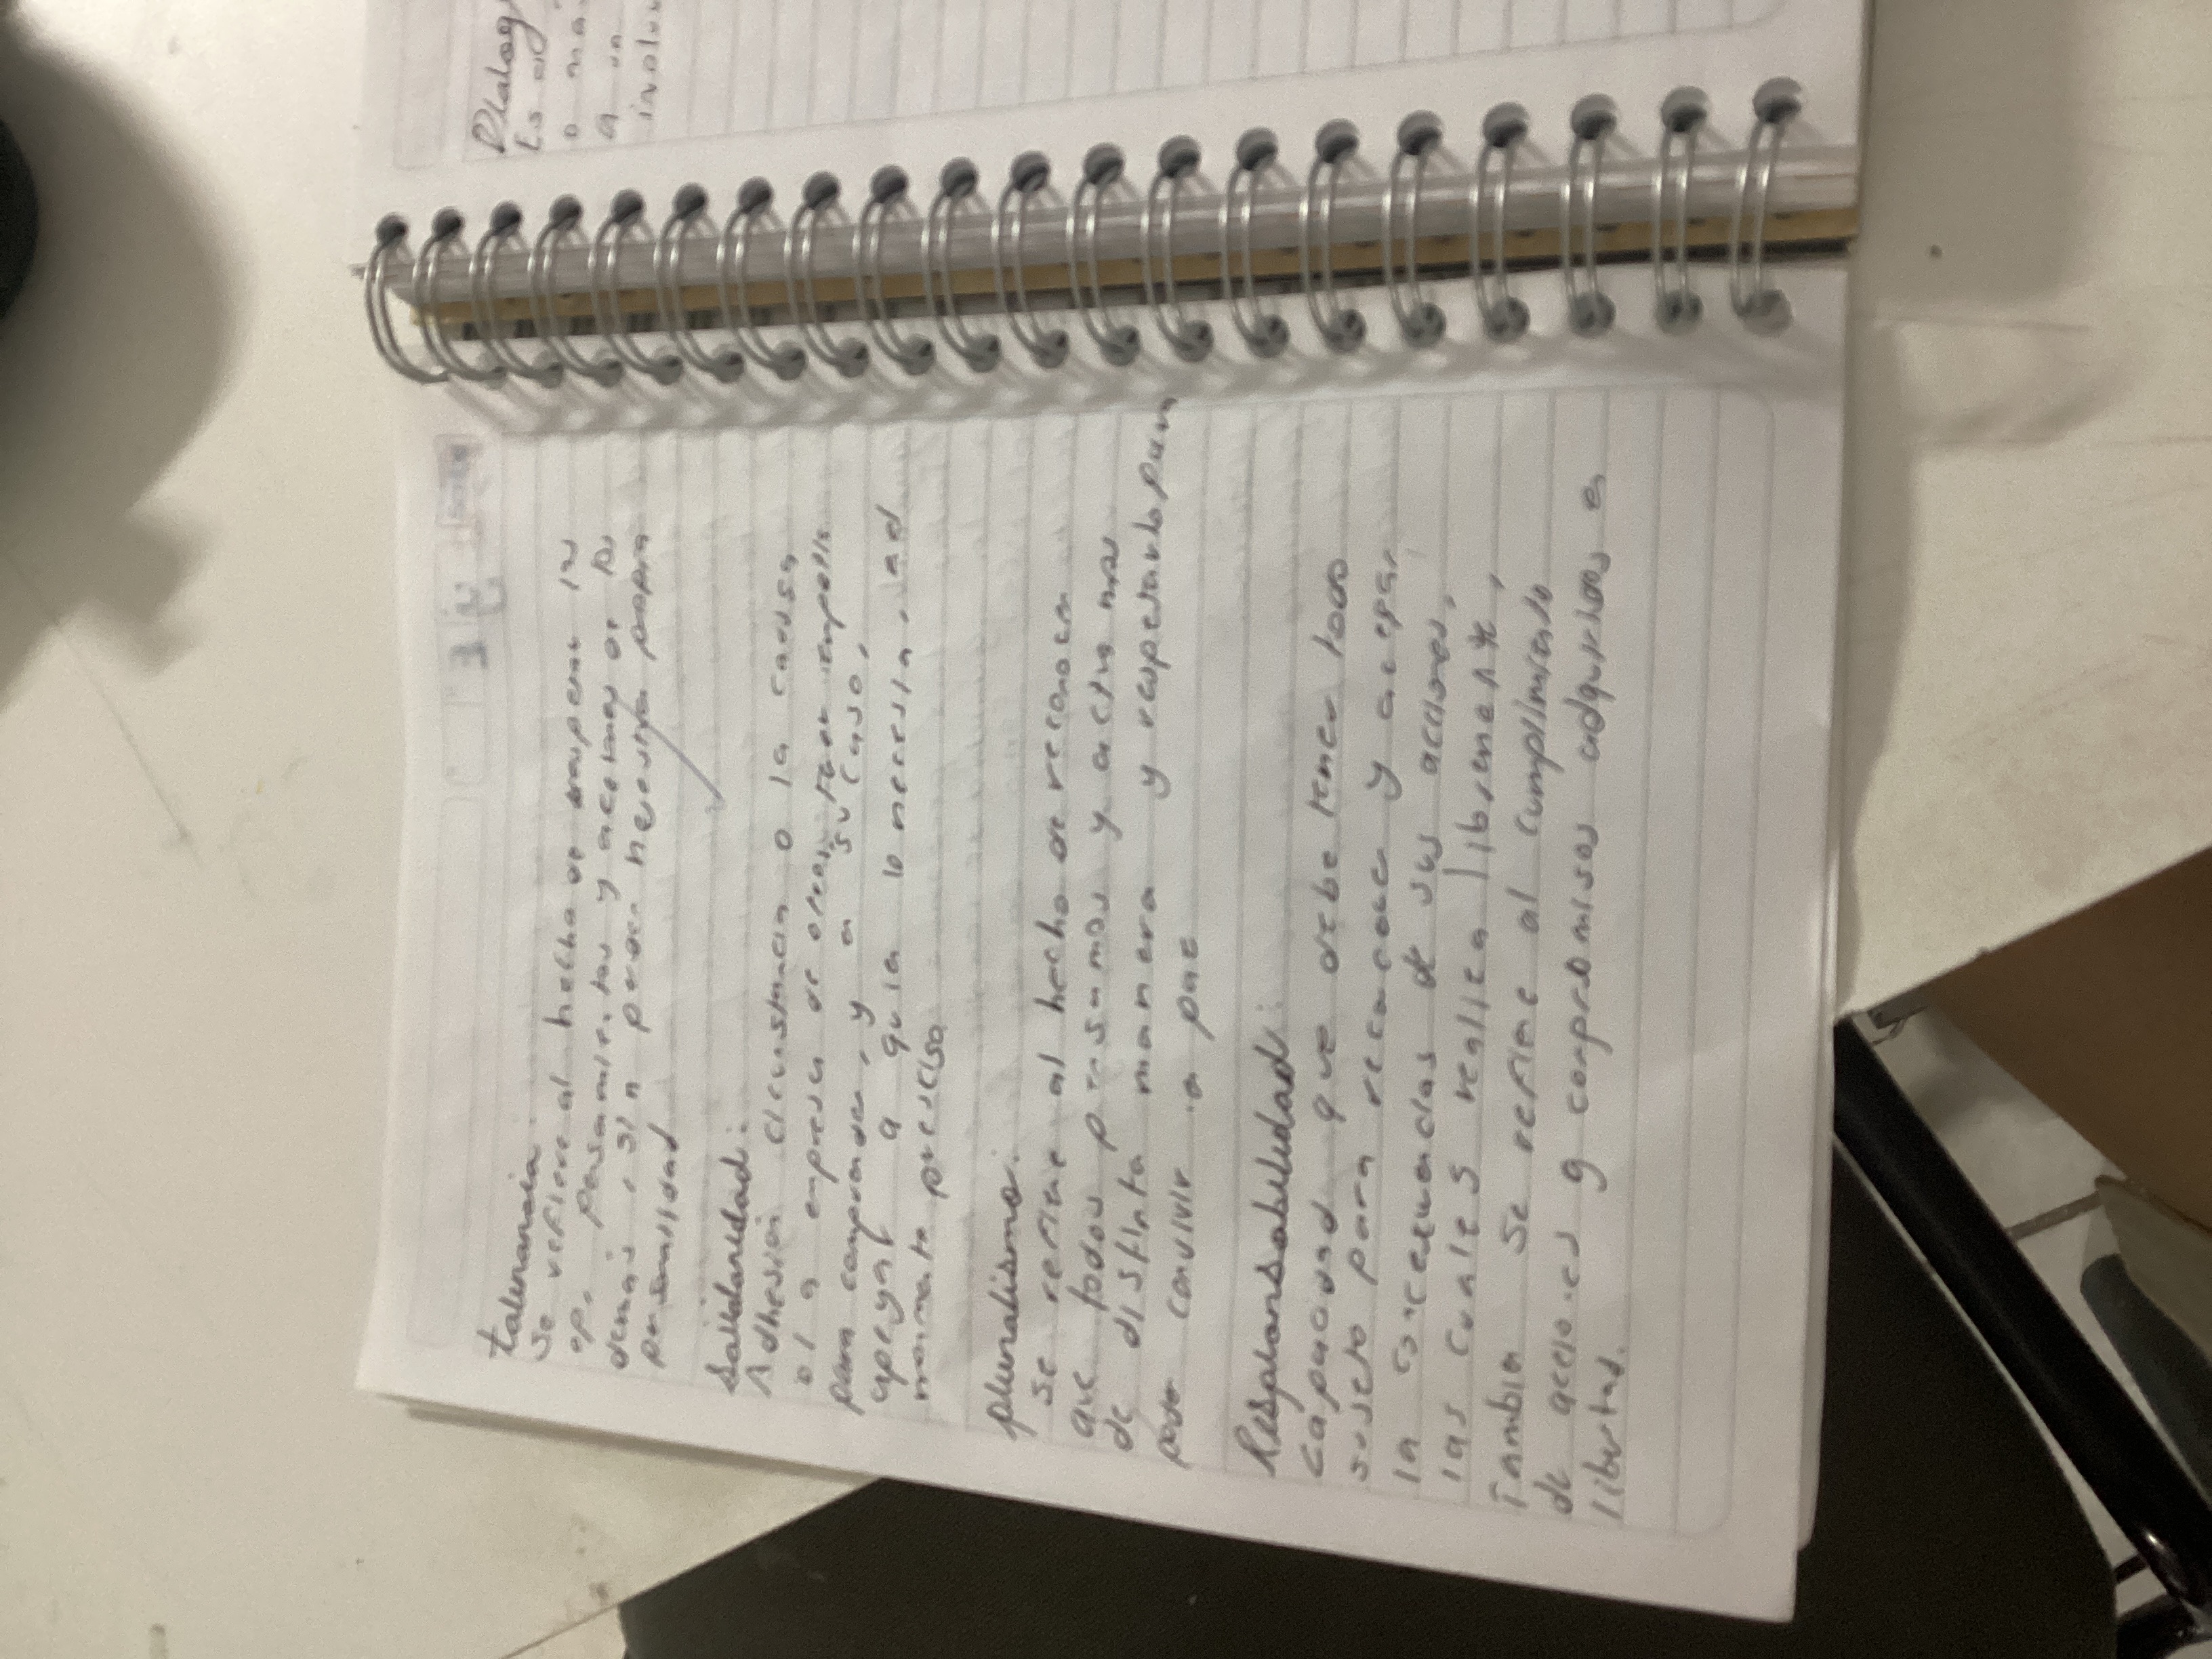 tolerancia:
Se refiere al hecho de respetar las
op, pensamientos y acciones de los
demas, sin perder nuestra propia
personalidad
Solidaridad:
Adhesión circustancia o la causa
o la empresa de otros,
para comprender, y a su caso,
apoyar a quien lo necesita, ad
momento preciso
pluralismo:
se refiere al hecho de reconocer
que todos pensamos y actuamos
de distinta manera y respetarlo para
poder convivir a paz
Responsabilidad:
capacidad que debe tener todo
sujeto para reconocer y acepar
la consecuencias de sus acciones,
las cuales realiza libremente,
Tambien se refiere al cumplimiento
de acciones y compromisos adquiridos e
libertad.
Dialog
Es
o ma
a un
involu